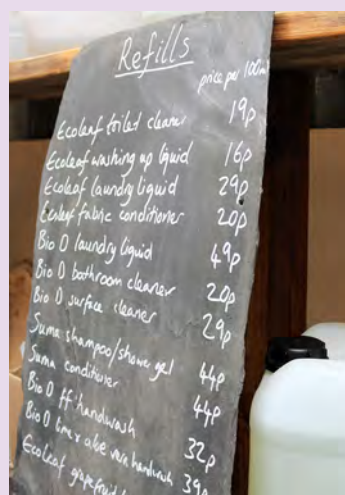 Refills
price per 100ml
Ecoleaf toilet cleaner 19p
Ecoleaf washing up liquid 16p
Ecoleaf laundry liquid 29p
Ecoleaf fabric conditioner 20p
Bio D laundry liquid 49p
Bio D bathroom cleaner 20p
Bio D surface cleaner 29p
Suma shampoo/shower gel 44p
Suma conditioner 44p
Bio D ff handwash 32p
Bio D lime + aloe vera handwash 39p
Ecoleaf grapefruit